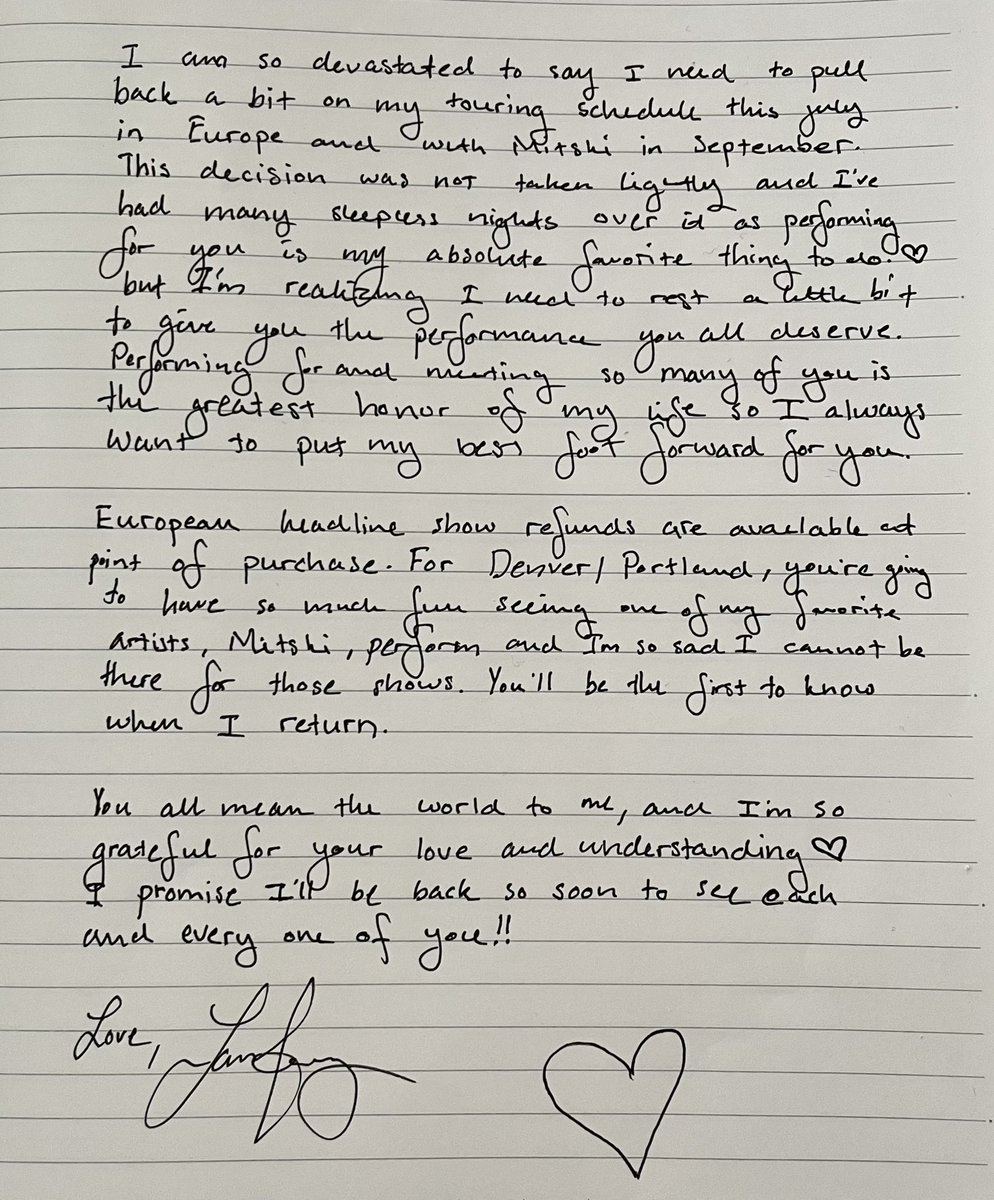 I am so devastated to say I need to pull
back a bit on my touring schedule this july
in Europe and with Mitski in September.
This decision was not taken lightly and I've
had many sleepless nights over it as performing
for you is my absolute favorite thing to do ♡
but I'm realizing I need to rest a little bit
to give you the performance you all deserve.
Performing for and meeting so many of you is
the greatest honor of my life so I always
want to put my best foot forward for you.
European headline show refunds are available at
point of purchase. For Denver/Portland, you're going
to have so much fun seeing one of my favorite
artists, Mitski, perform and I'm so sad I cannot be
there for those shows. You'll be the first to know
when I return.
You all mean the world to me, and I'm so
grateful for your love and understanding ♡
I promise I'll be back so soon to see each
and every one of you!!
Love,